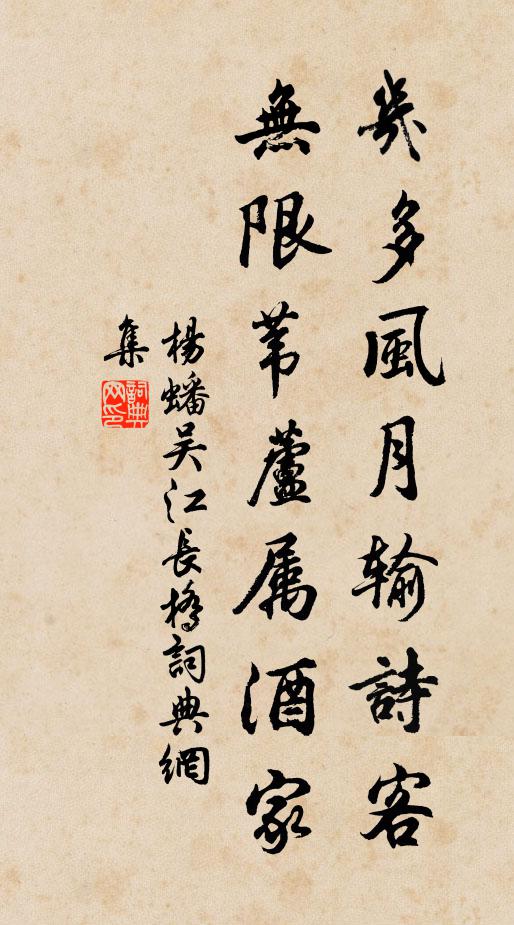 幾多風月輸詩客
無限苇蘆属酒家
楊蟠吴江長橋詞典網
集
詞典網印